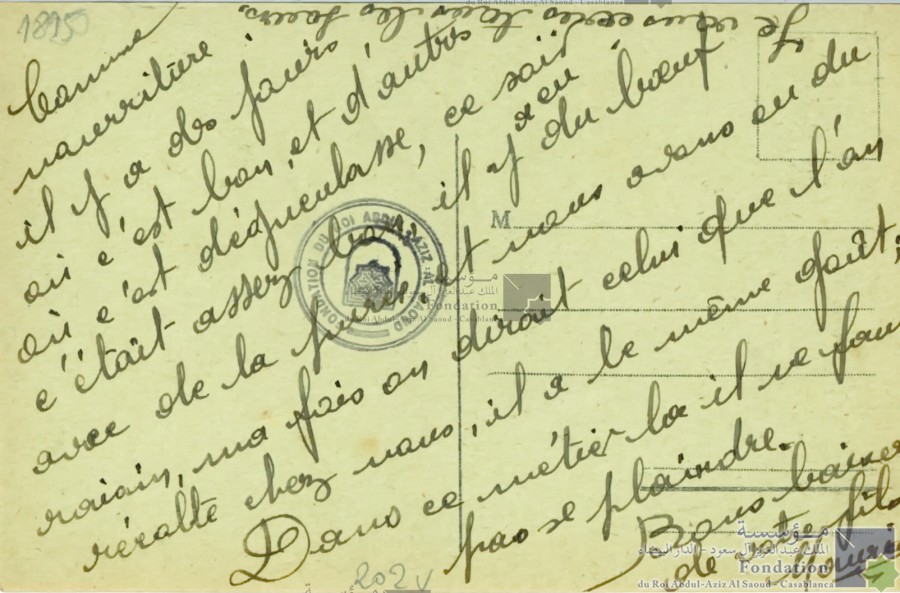 18950
Je vous écris tous les jours.
Comme
nourriture
il y a des jours
où c'est bon, et d'autres
où c'est dégueulasse, ce soir
c'était assez bon, il y a eu du bœuf
avec de la purée, et nous avons eu du
raisin, ma fois on dirait celui que l'on
récolte chez nous, il a le même goût,
Dans ce métier la il ne faut
pas se plaindre.
Bons baisers
de votre fils
Maurice
202V
M
FONDATION DU ROI ABDUL-AZIZ AL SAOUD
مؤسسة
الملك عبد العزيز آل سعود - الدار البيضاء
Fondation
du Roi Abdul-Aziz Al Saoud - Casablanca
مؤسسة
الملك عبد العزيز آل سعود - الدار البيضاء
Fondation
du Roi Abdul-Aziz Al Saoud - Casablanca
du Roi Abdul-Aziz Al Saoud - Casablanca